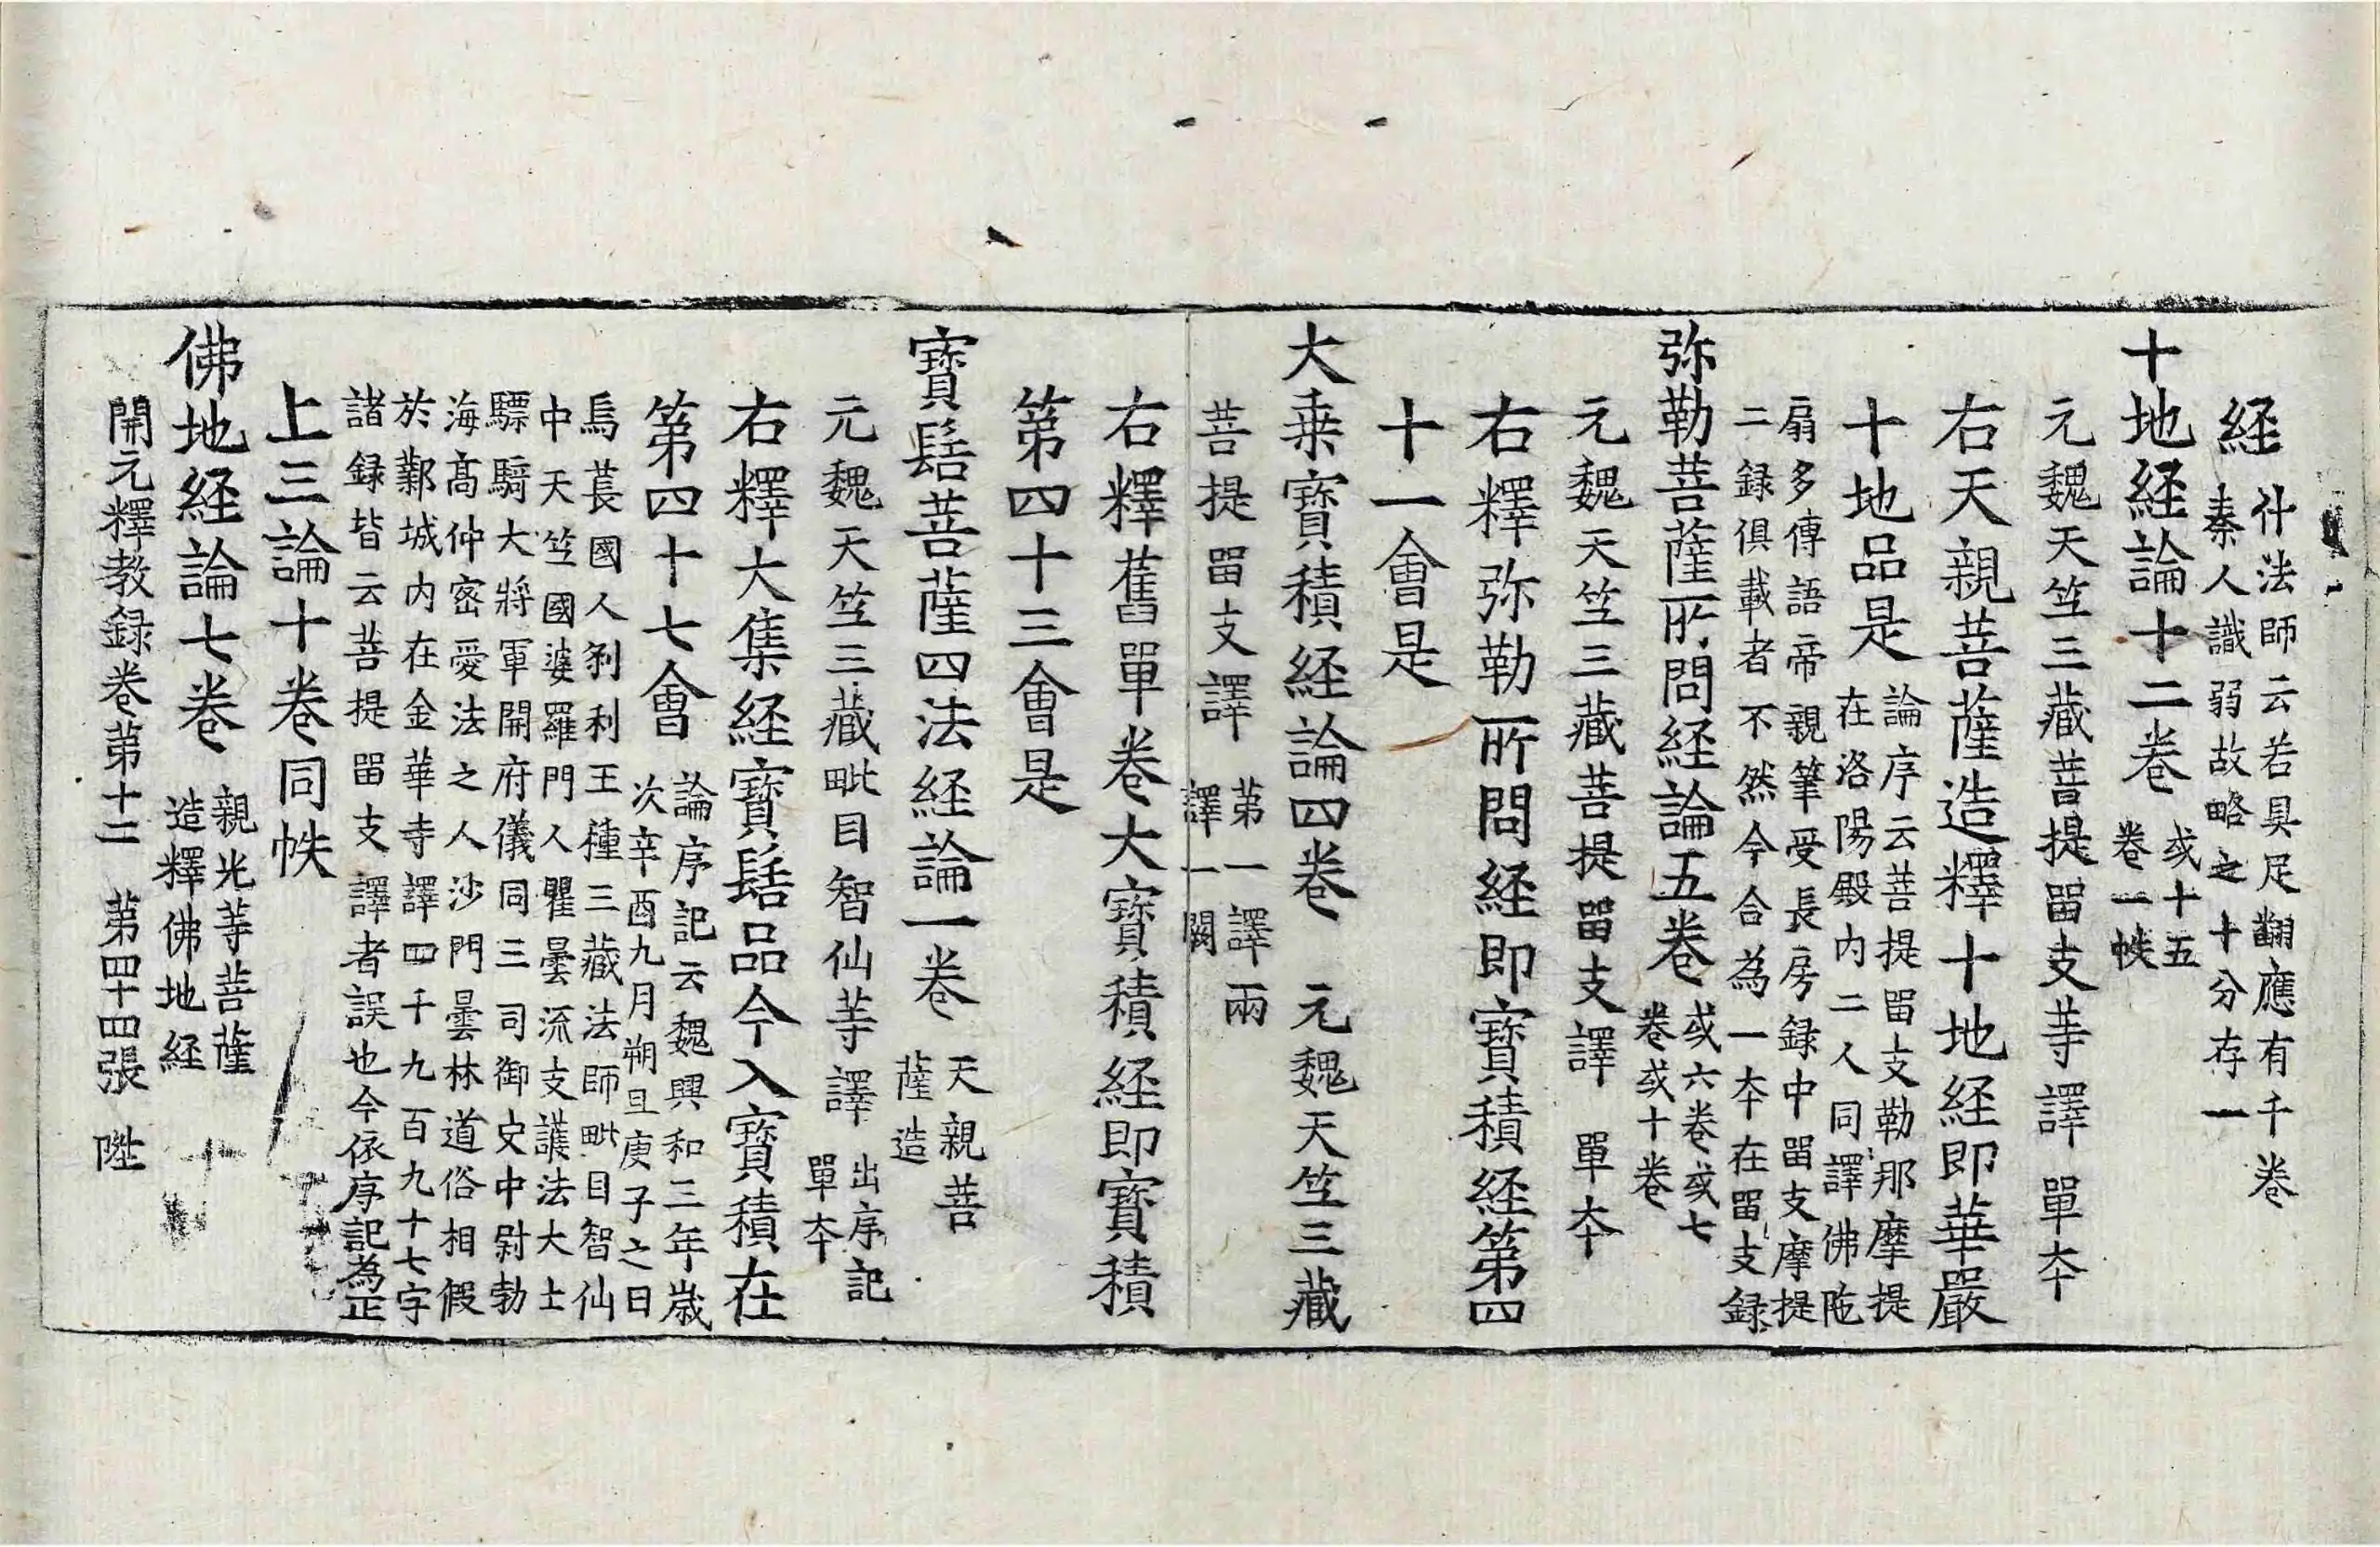 経
什法師云若具足翻應有千卷
秦人識弱故略之十分存一
十地経論十二卷
或十五
卷一帙
元魏天竺三藏菩提留支等譯 單夲
右天親菩薩造釋十地経即華嚴
十地品是
論序云菩提留支勒那摩提
在洛陽殿内二人同譯佛陁
扇多傳語帝親筆受長房録中留支摩提
二録俱載者不然今合為一夲在留支録
弥勒菩薩所問経論五卷
或六卷或七
卷或十卷
元魏天竺三藏菩提留支譯 單夲
右釋弥勒所問経即寶積経第四
十一會是
大乗寶積経論四卷 元魏天竺三藏
菩提留支譯
苐一譯兩
譯一闕
右釋舊單卷大寶積経即寶積
第四十三會是
寶髻菩薩四法経論一卷
天親菩
薩造
元魏天竺三藏毗目智仙等譯
出序記
單夲
右釋大集経寶髻品今入寶積在
第四十七會
論序記云魏興和三年歲
次辛酉九月朔旦庚子之日
烏萇國人刹利王種三藏法師毗目智仙
中天竺國婆羅門人瞿曇流支護法大士
驃騎大將軍開府儀同三司御史中尉勃
海髙仲密愛法之人沙門曇林道俗相假
於鄴城内在金華寺譯四千九百九十七字
諸録皆云菩提留支譯者誤也今依序記為正
上三論十卷同帙
佛地経論七卷
親光等菩薩
造釋佛地経
開元釋教録卷苐十二 苐四十四張 陞